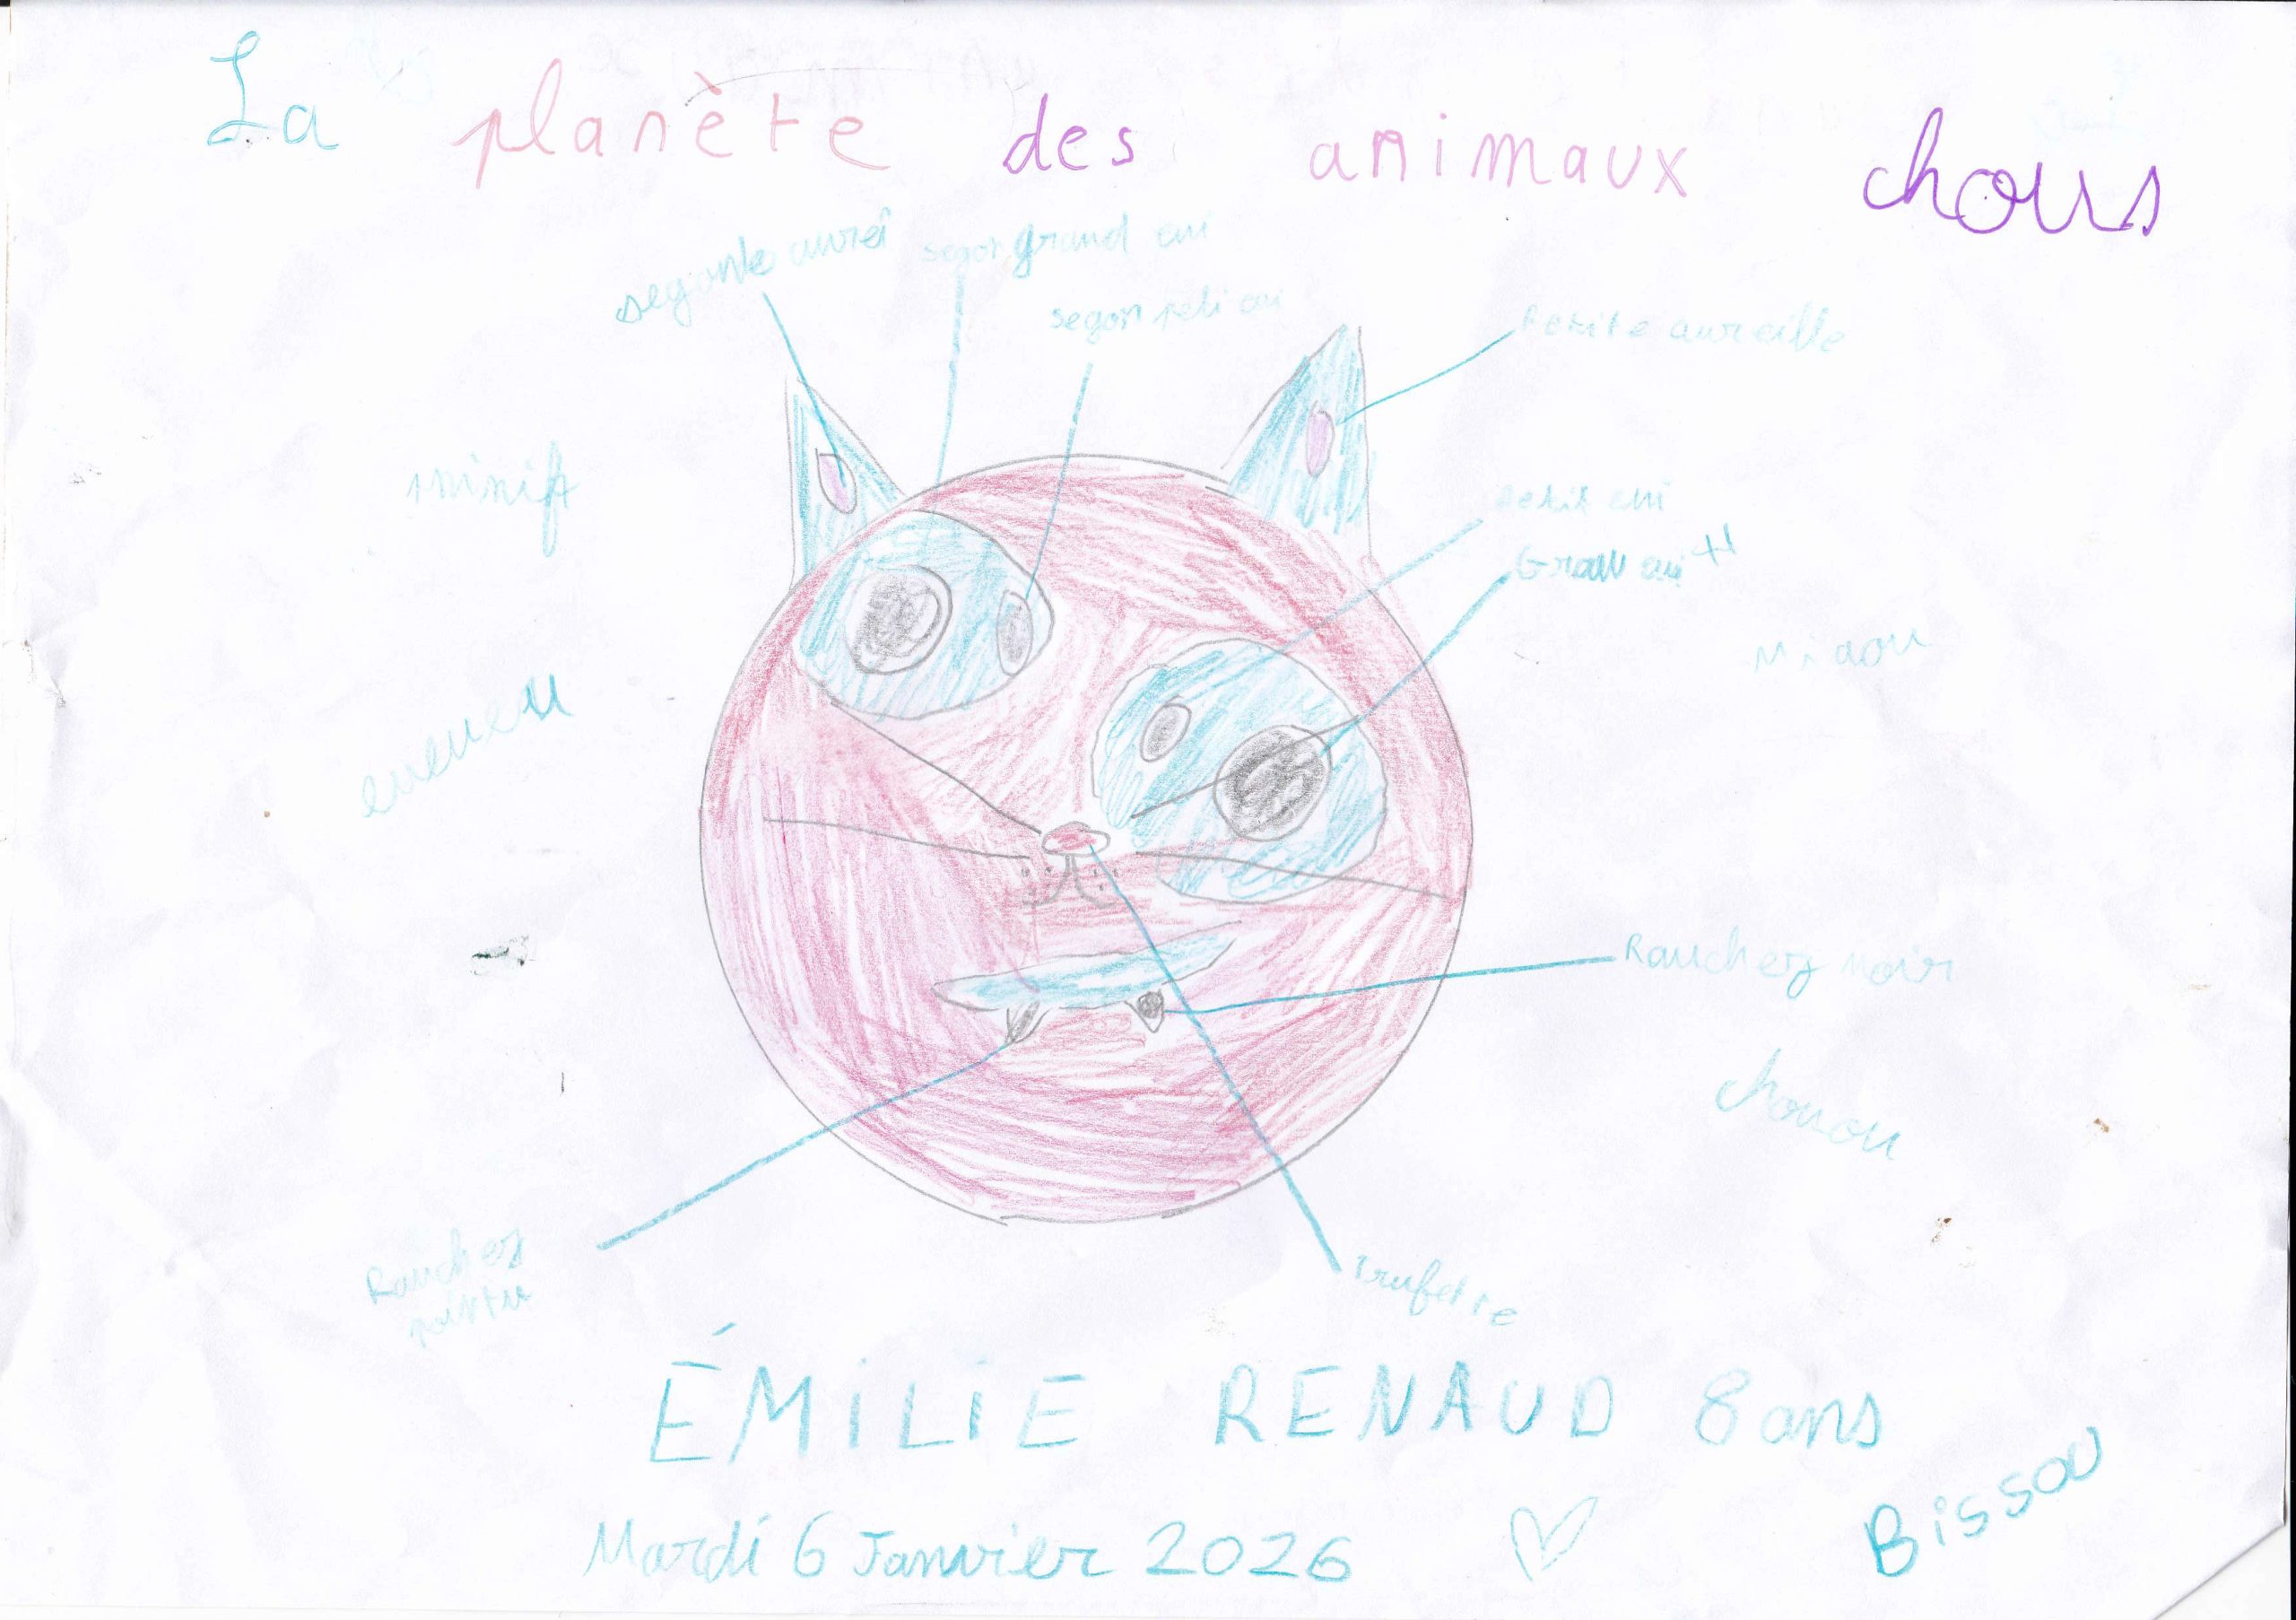 La planète des animaux chous
segonde aurei
segon grand eui
segon peti eui
Petite aureille
minift
petit eui
Gran eui
Miaou
Rauchez noir
chouou
Rauchez
pointu
trufette
ÉMILIE RENAUD 8 ans
Mardi 6 Janvier 2026
Bissou